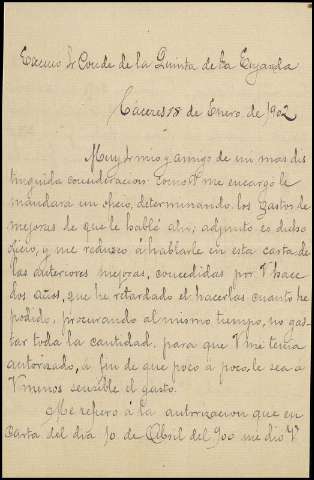 Excmo Sr Conde de la Quinta de la Enjarada
Cáceres 18 de Enero de 1902
Muy Sr mio y amigo de mi mas dis
tinguida consideracion: como V. me encargó le
mandara un oficio, determinando los gastos de
mejoras de que le hablé ahi, adjunto es dicho
oficio, y me reduzco á hablarle en esta carta de
las anteriores mejoras, concedidas por V hace
dos años, que he retardado el hacerlas cuanto he
podido, procurando al mismo tiempo, no gas-
tar toda la cantidad, para que V me tenia
autorizado, á fin de que poco á poco, le sea a
V menos sensible el gasto.
Me refiero á la autorizacion que en
carta del dia 10 de Abril del 900 me dió V.